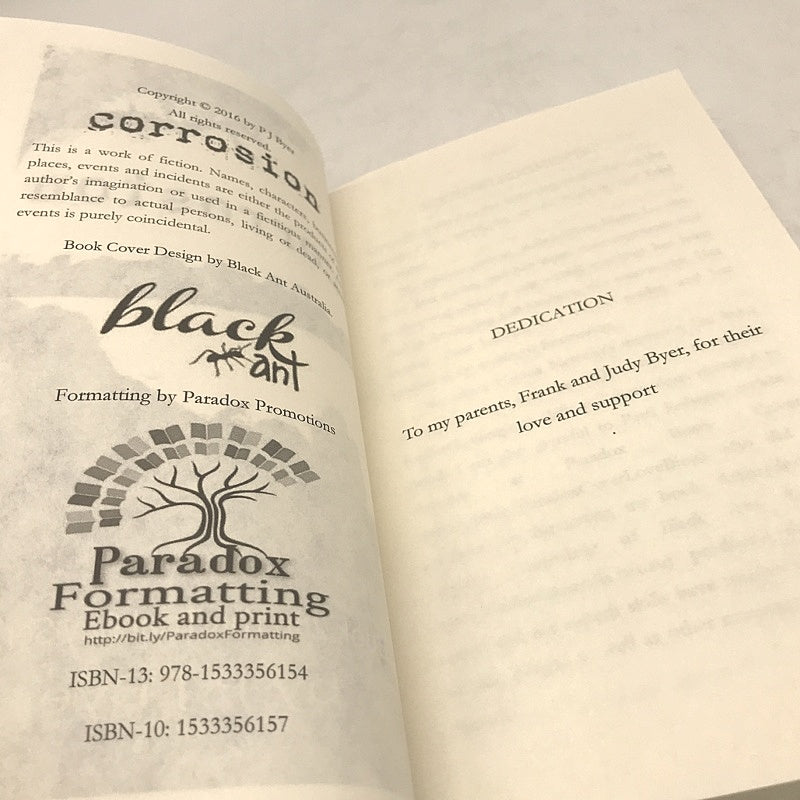 Copyright © 2016 by P J Byer
All rights reserved.
corrosion
This is a work of fiction. Names, characters,
places, events and incidents are either the products of
author's imagination or used in a fictitious manner.
resemblance to actual persons, living or dead, or
events is purely coincidental.
Book Cover Design by Black Ant Australia.
black
ant
Formatting by Paradox Promotions
Paradox
Formatting
Ebook and print
http://bit.ly/ParadoxFormatting
ISBN-13: 978-1533356154
ISBN-10: 1533356157
DEDICATION
To my parents, Frank and Judy Byer, for their
love and support
.